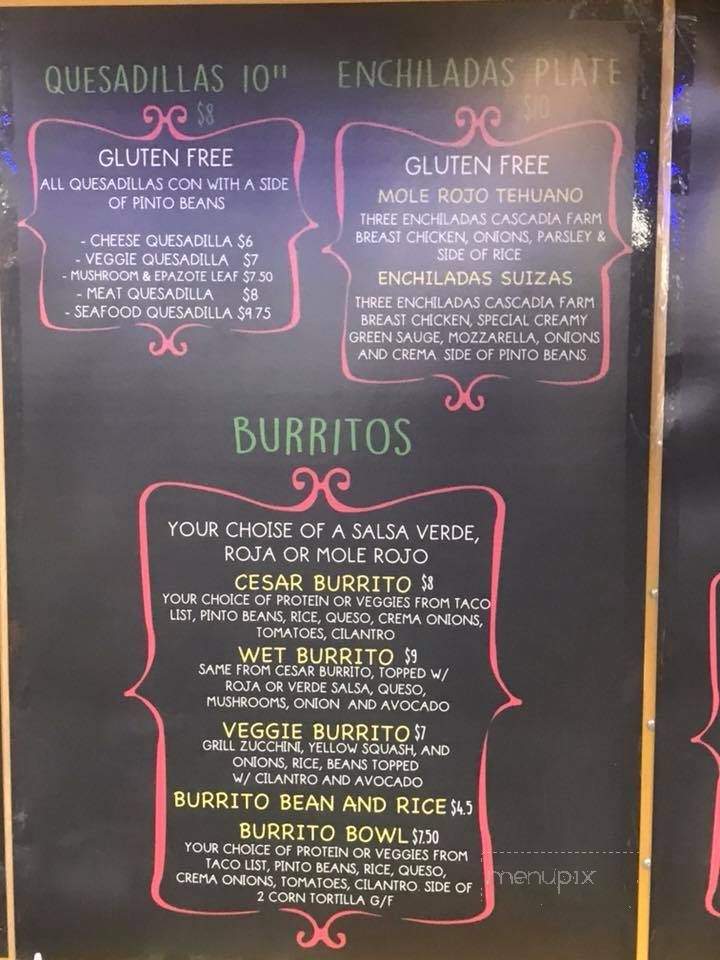 QUESADILLAS 10"
$8
GLUTEN FREE
ALL QUESADILLAS CON WITH A SIDE
OF PINTO BEANS
- CHEESE QUESADILLA $6
- VEGGIE QUESADILLA $7
- MUSHROOM & EPAZOTE LEAF $7.50
- MEAT QUESADILLA $8
- SEAFOOD QUESADILLA $9.75
ENCHILADAS PLATE
$10
GLUTEN FREE
MOLE ROJO TEHUANO
THREE ENCHILADAS CASCADIA FARM
BREAST CHICKEN, ONIONS, PARSLEY &
SIDE OF RICE
ENCHILADAS SUIZAS
THREE ENCHILADAS CASCADIA FARM
BREAST CHICKEN, SPECIAL CREAMY
GREEN SAUGE, MOZZARELLA, ONIONS
AND CREMA SIDE OF PINTO BEANS
BURRITOS
YOUR CHOISE OF A SALSA VERDE,
ROJA OR MOLE ROJO
CESAR BURRITO $8
YOUR CHOICE OF PROTEIN OR VEGGIES FROM TACO
LIST, PINTO BEANS, RICE, QUESO, CREMA ONIONS,
TOMATOES, CILANTRO
WET BURRITO $9
SAME FROM CESAR BURRITO, TOPPED W/
ROJA OR VERDE SALSA, QUESO,
MUSHROOMS, ONION AND AVOCADO
VEGGIE BURRITO $7
GRILL ZUCCHINI, YELLOW SQUASH, AND
ONIONS, RICE, BEANS TOPPED
W/ CILANTRO AND AVOCADO
BURRITO BEAN AND RICE $4.5
BURRITO BOWL $7.50
YOUR CHOICE OF PROTEIN OR VEGGIES FROM
TACO LIST, PINTO BEANS, RICE, QUESO,
CREMA ONIONS, TOMATOES, CILANTRO SIDE OF
2 CORN TORTILLA G/F
menupix